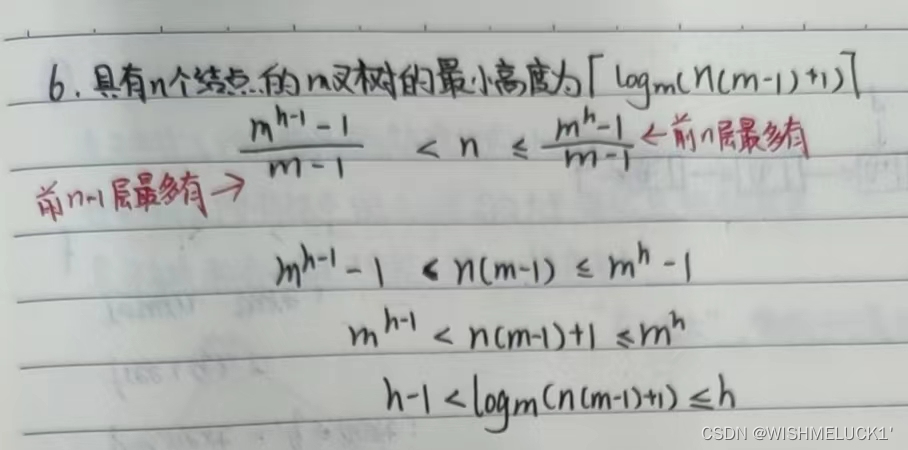 6. 具有n个结点的m叉树的最小高度为⌈logm(n(m-1)+1)⌉
(m^(h-1) - 1)/(m-1) < n ≤ (m^h - 1)/(m-1) ←前n层最多有
前n-1层最多有→
m^(h-1) - 1 < n(m-1) ≤ m^h - 1
m^(h-1) < n(m-1)+1 ≤ m^h
h-1 < logm(n(m-1)+1) ≤ h
CSDN @WISHMELUCK1'